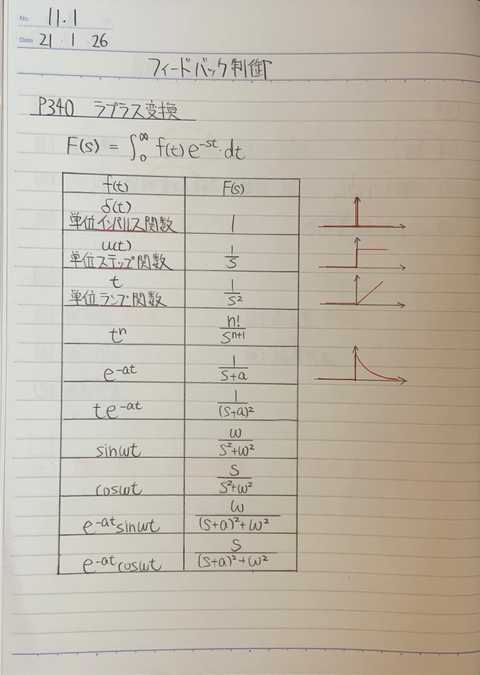 No. 11.1
Date 21・1・26
フィードバック制御
P340 ラプラス変換
F(s) = ∫₀^∞ f(t)e^-st・dt
f(t) F(s)
δ(t)
単位インパルス関数 1
u(t)
単位ステップ関数 1/s
t
単位ランプ関数 1/s²
tⁿ n!/s^n+1
e^-at 1/(s+a)
te^-at 1/(s+a)²
sinωt ω/(s²+ω²)
cosωt s/(s²+ω²)
e^-at sinωt ω/((s+a)²+ω²)
e^-at cosωt s/((s+a)²+ω²)